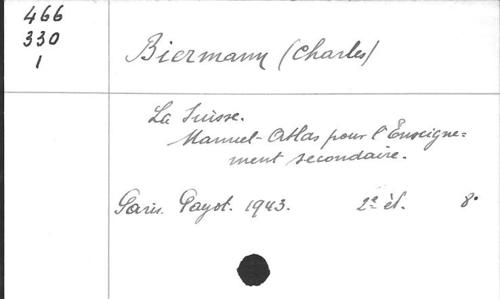 466
330
1
Biermann (Charles)
La Suisse.
Manuel-Atlas pour l'Enseigne=
ment secondaire.
Paris. Payot. 1943. 2e éd. 8°